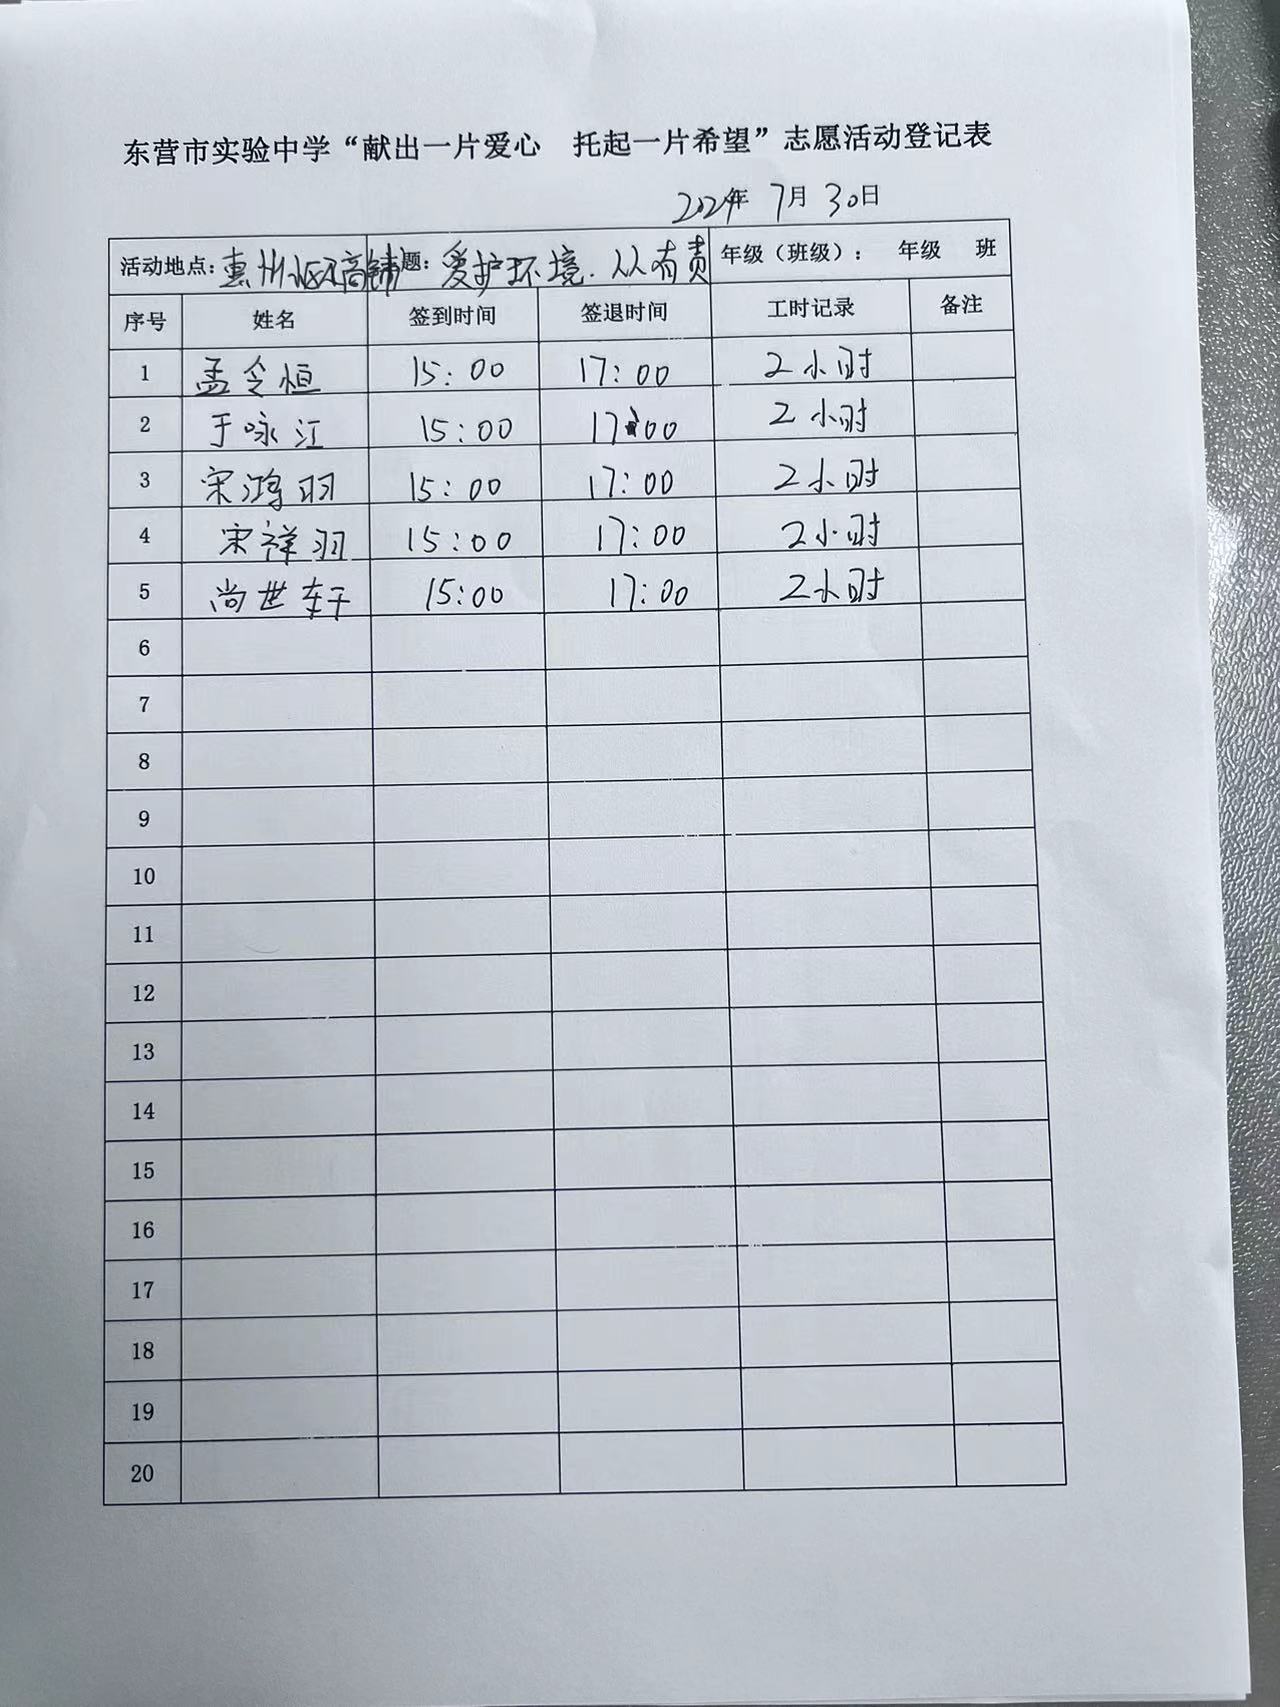 东营市实验中学“献出一片爱心 托起一片希望”志愿活动登记表
2024年 7月 30日
活动地点：惠州 高铺 题：爱护环境.人人有责 年级（班级）： 年级 班
序号 姓名 签到时间 签退时间 工时记录 备注
1 孟令恒 15:00 17:00 2小时
2 于咏江 15:00 17:00 2小时
3 宋鸿羽 15:00 17:00 2小时
4 宋祥羽 15:00 17:00 2小时
5 尚世轩 15:00 17:00 2小时
6
7
8
9
10
11
12
13
14
15
16
17
18
19
20